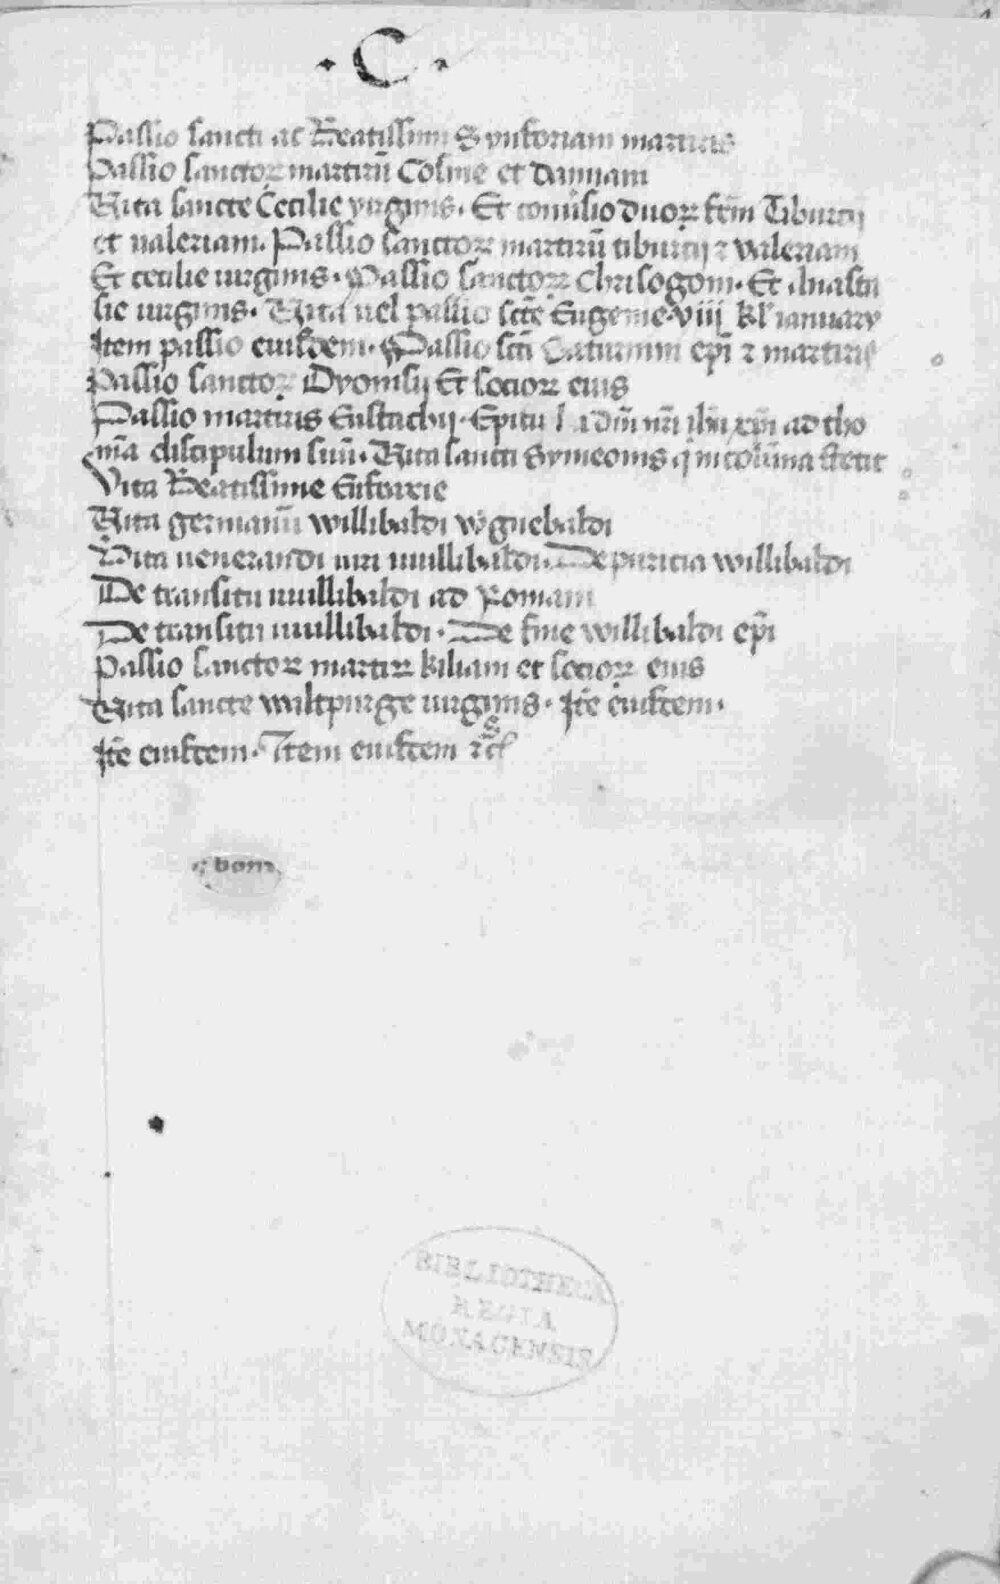 · C ·
Passio sancti ac Beatissimi Synforiani martiris
Passio sanctoꝝ martirū Cosme et Damiani
Vita sancte Cecilie virginis. Et cōuersio duoꝝ frm̄ Tiburcij
et ualeriani. Passio sanctoꝝ martirū tiburcij ⁊ valeriani
Et cecilie uirginis. Passio sanctoꝝ Chrisogoni. Et Anasta
sie uirginis. Vita uel passio scē Eugenie viij kl' ianuarij
Item passio eiusdem. Passio scī Saturnini ep̄i ⁊ martiris
Passio sanctoꝝ Dyonisij Et socioꝝ eius
Passio martiris Eustachij. dn̄i nr̄i ih̄u xp̄i ad tho
mā discipulum suū. Vita sancti Symeonis q̄ in colūna stetit
Vita Beatissime Eufraxie
Vita germanū willibaldi wgnebaldi
Vita uenerandi uiri wuillibaldi. De puricia willibaldi
De transitu wuillibaldi ad Romam
De transitu wuillibaldi. De fine willibaldi ep̄i
Passio sanctoꝝ martiꝝ kiliani et socioꝝ eius
Vita sancte waltpurge uirginis. Itē eiusdem.
Itē eiusdem. Item eiusdem
BIBLIOTHECA
REGIA
MONACENSIS